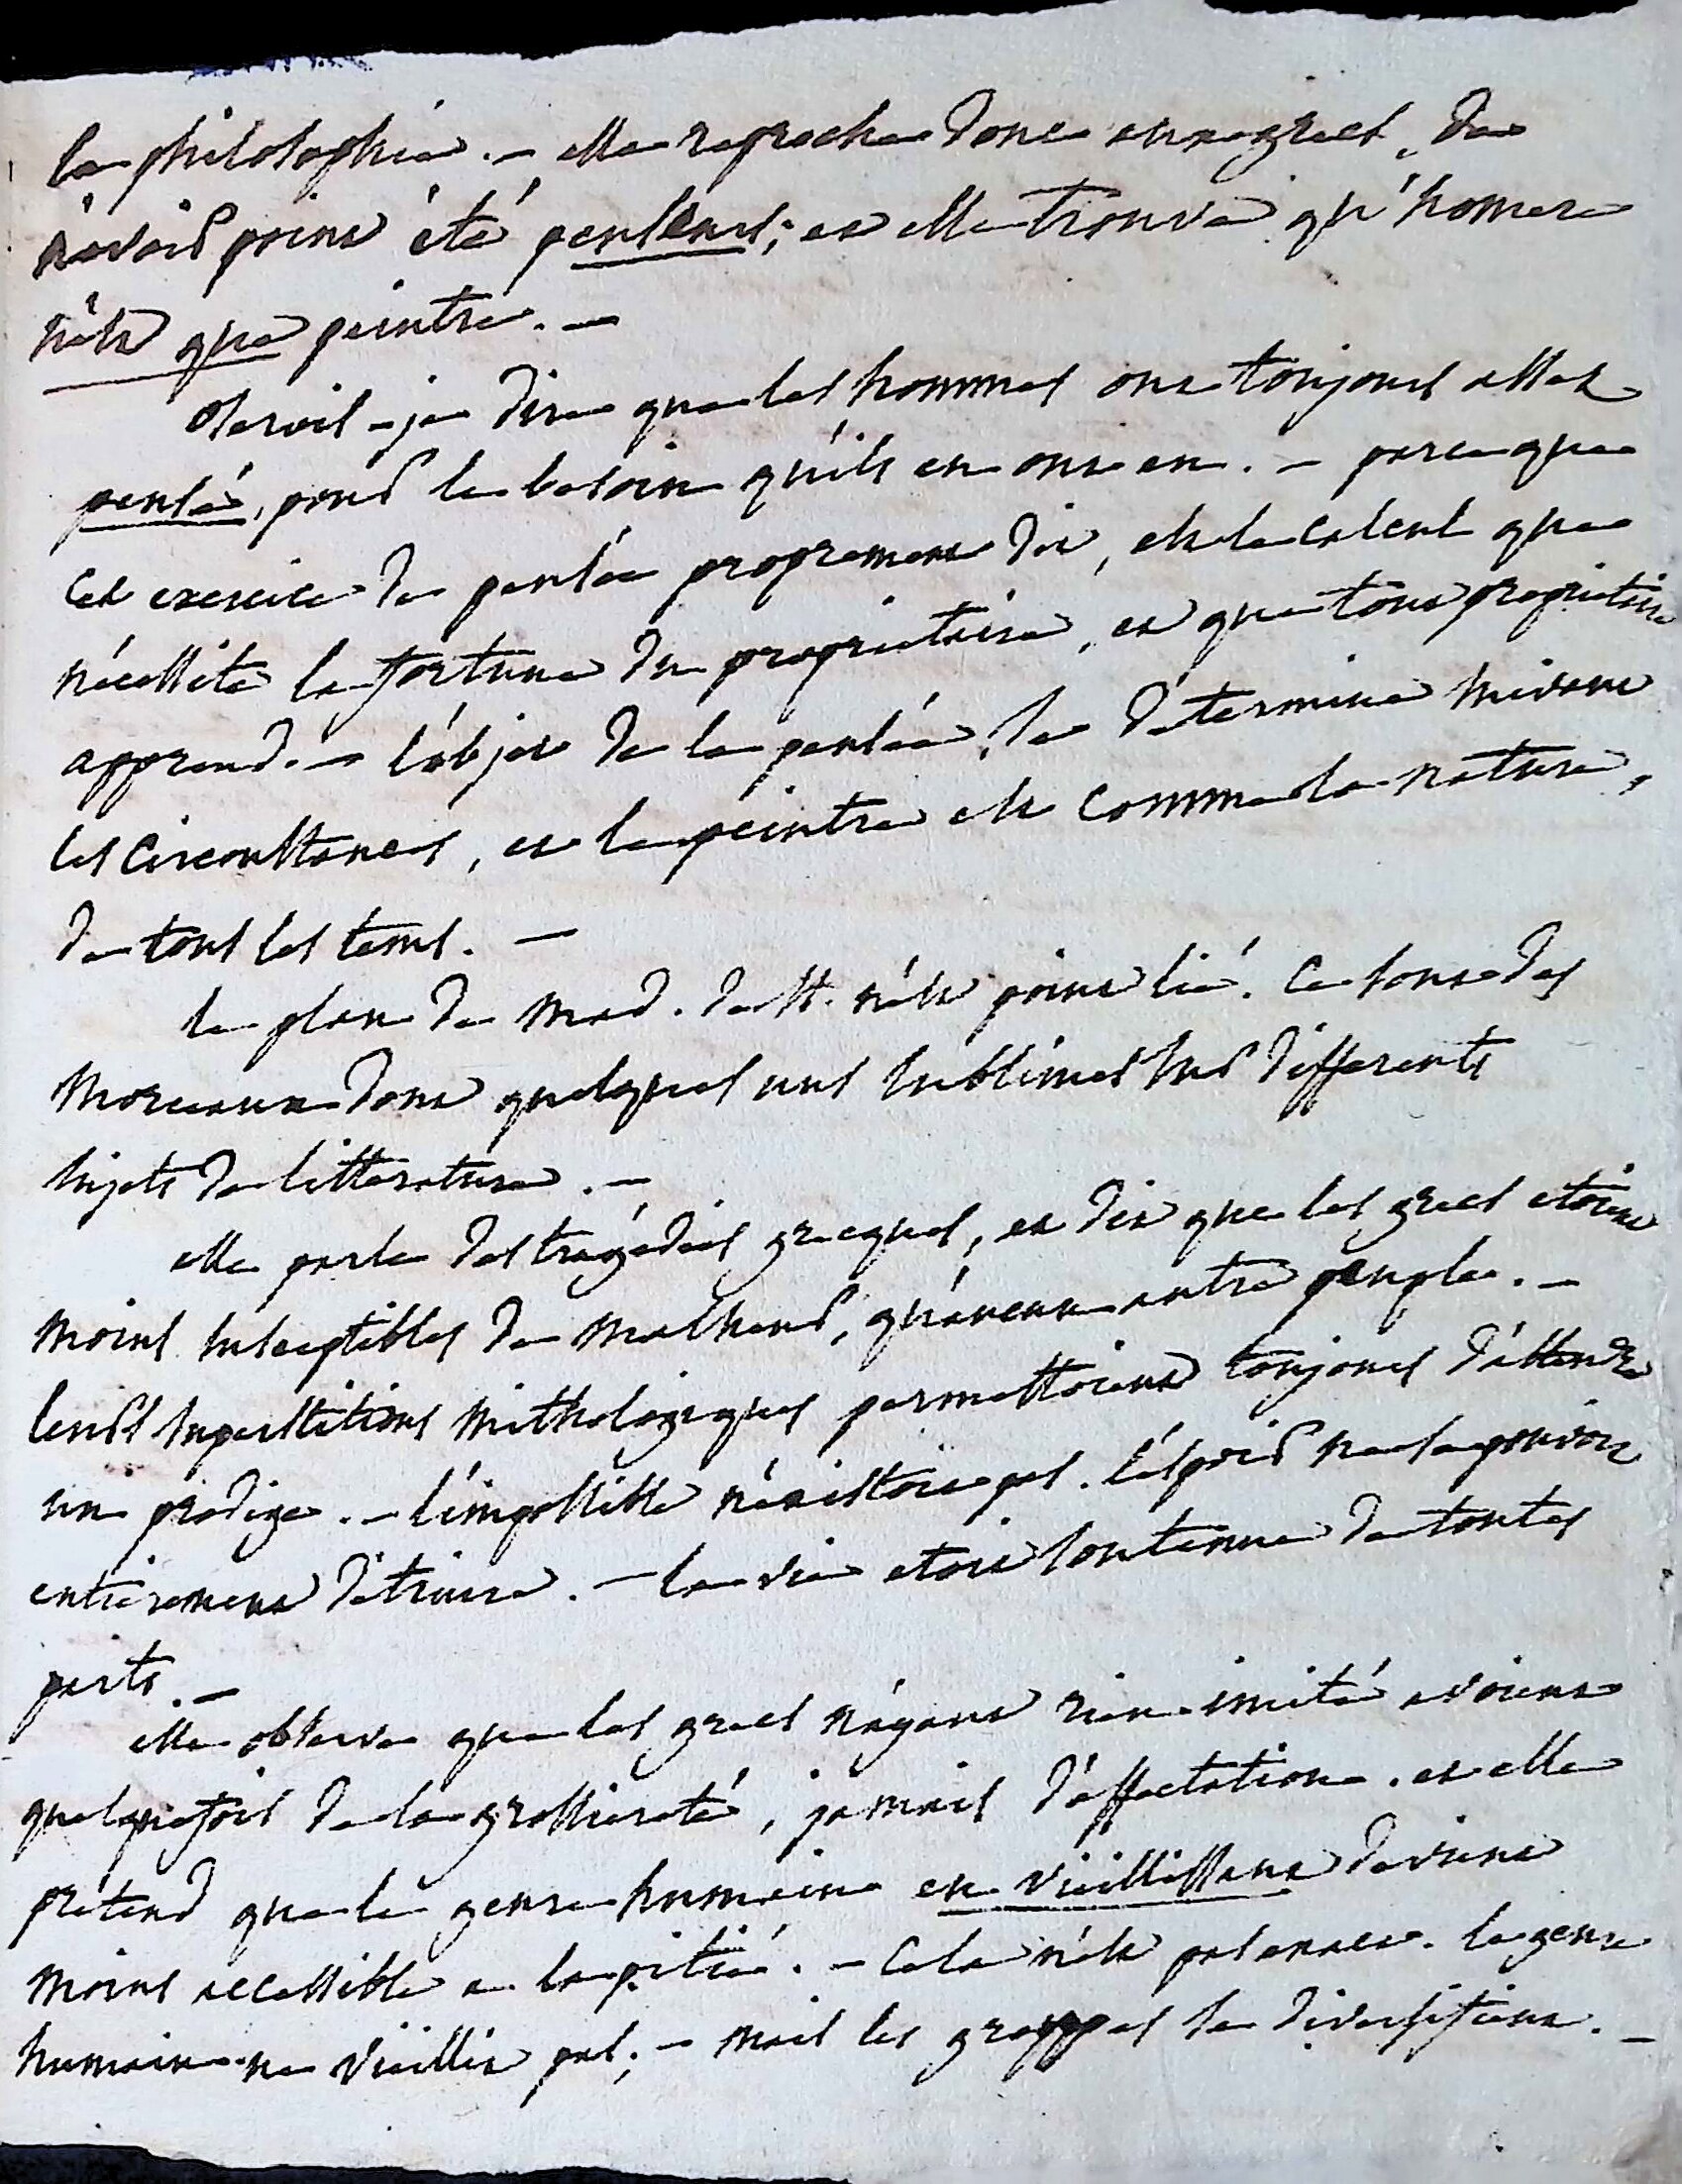 la philosophie. — elle reproche donc aux grecs, de
n'avoir point été penseurs; et elle trouve qu'homere
n'est que peintre. —
oserois-je dire que les hommes ont toujours assez
pensé, pour le besoin qu'ils en ont eu. — parce que
cet exercice de pensée proprement dit, est le calcul que
nécessite la fortune du propriétaire, et que tout propriétaire
apprend. — l'objet de la pensée, se détermine suivant
les circonstances, et le peintre est comme la nature,
de tous les tems. —
le plan de Mad. de St. n'est point lié. Ce sont des
morceaux dont quelques uns sublimes sur differents
sujets de litterature. —
elle parle des tragédies grecques, et dit que les grecs etoient
moins susceptibles de malheur, qu'aucun autre peuple. —
leurs superstitions mithologiques permettoient toujours d'attendre
un prodige. — l'impossible n'existoit pas. l'espoir ne se pouvoit
entièrement détruire. — la vie etoit soutenue de toutes
parts. —
elle observe que les grecs n'ayant rien imité avoient
quelquefois de la grossiereté, jamais d'affectation. et elle
prétend que le genre humain en vieillissant devient
moins accessible a la pitié. — Cela n'est pas exact. le genre
humain ne vieillit pas; — mais les grouppes se diversifient. —